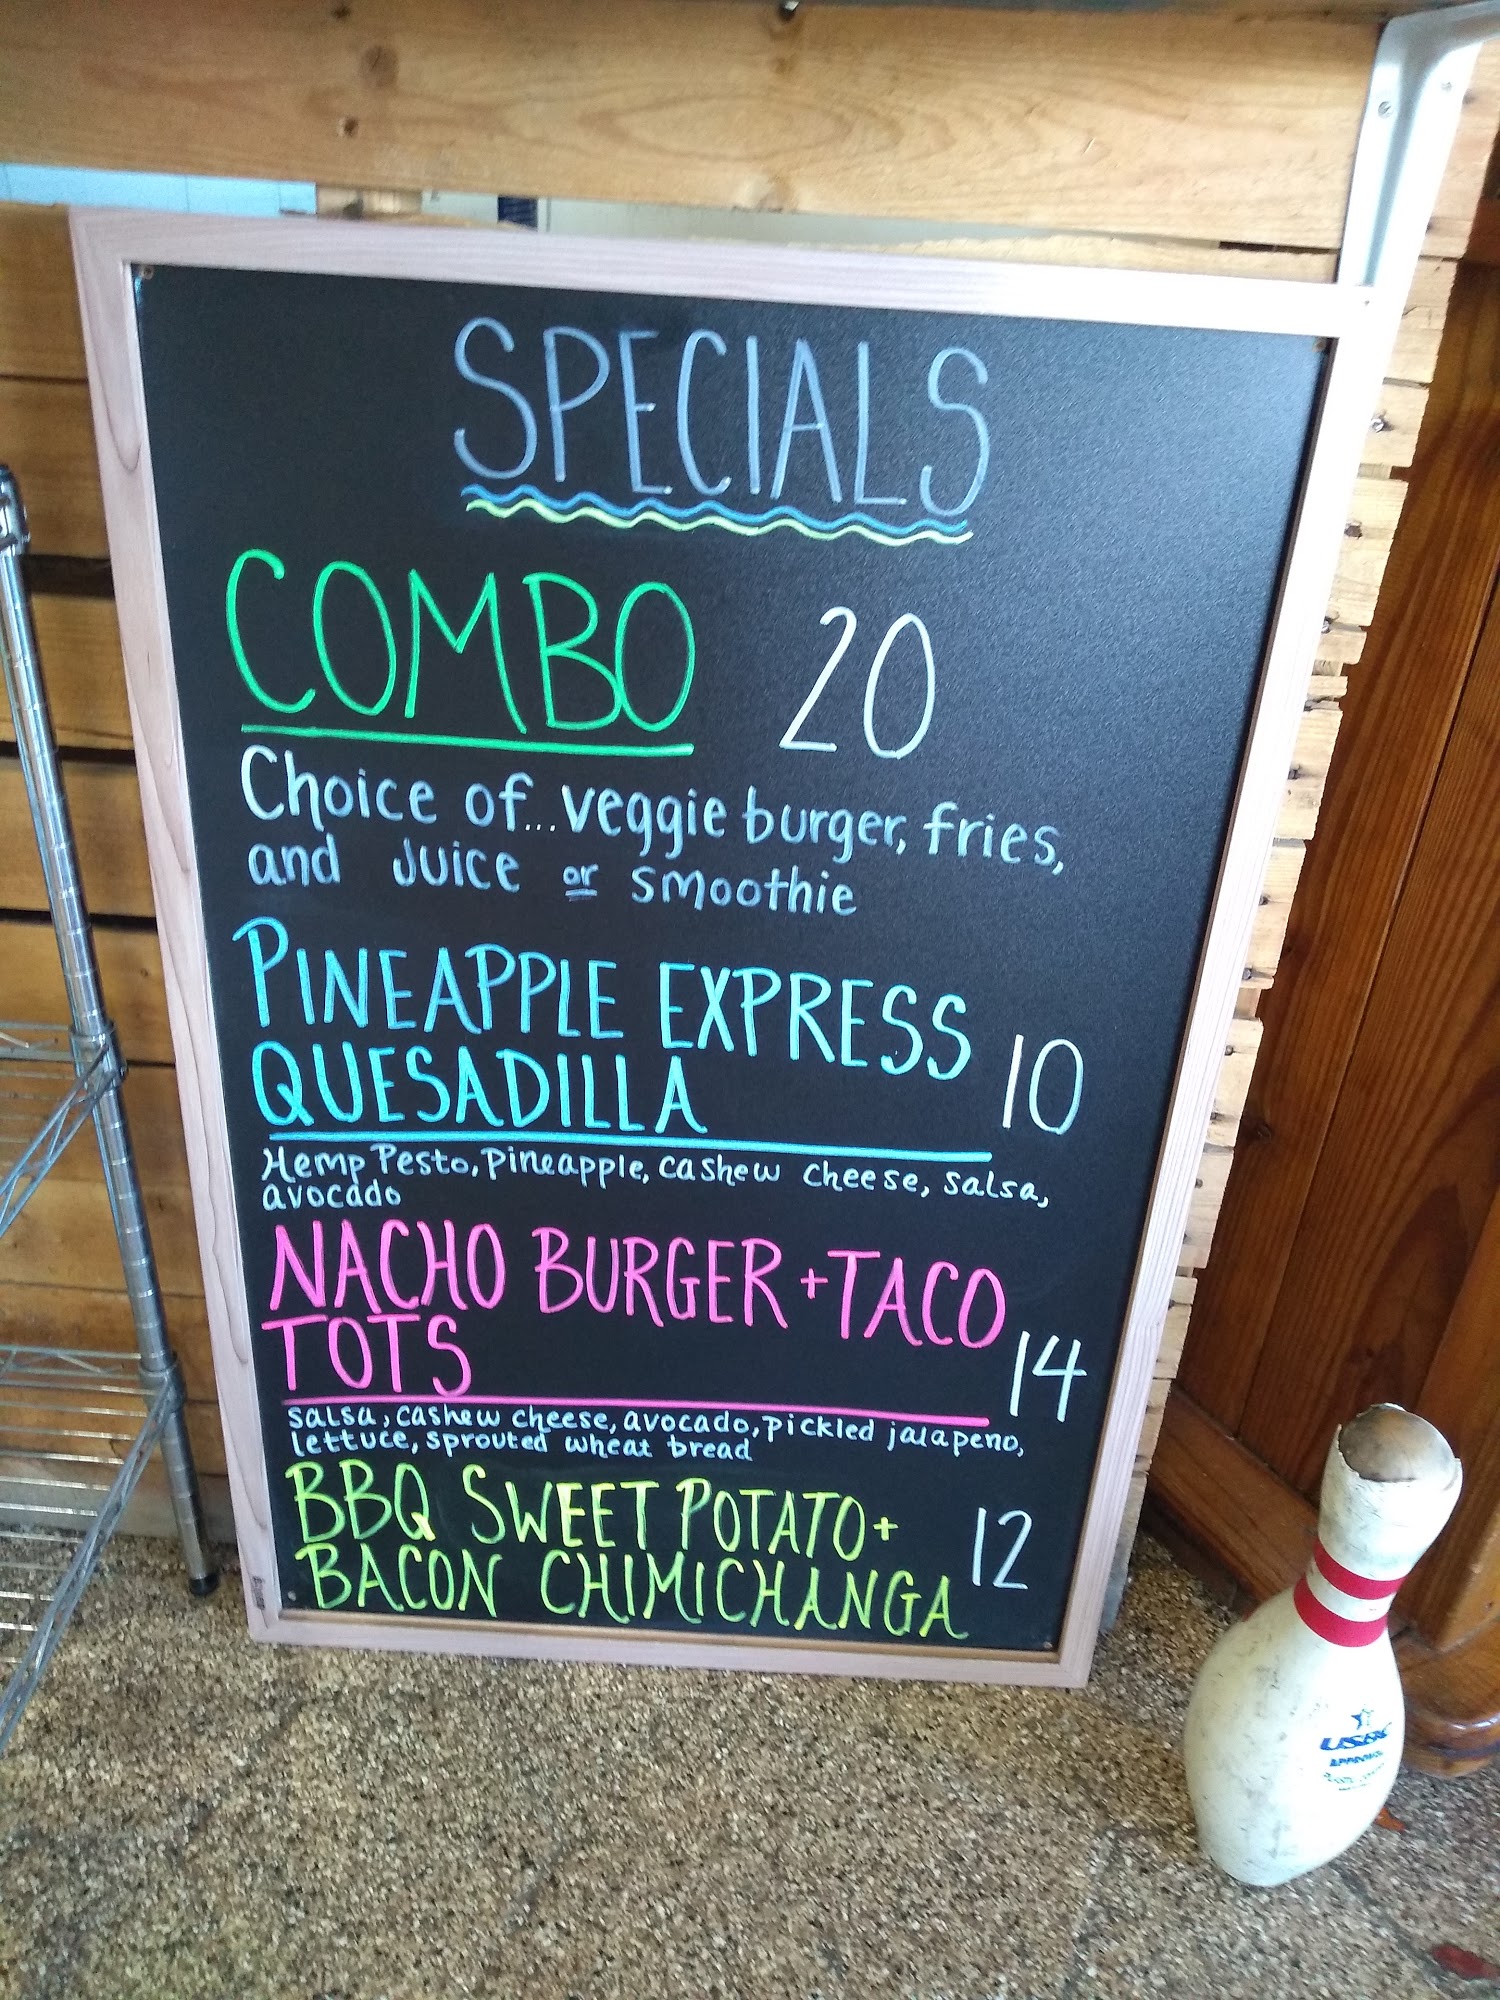 SPECIALS
COMBO 20
Choice of...veggie burger, fries,
and Juice or smoothie
PINEAPPLE EXPRESS
QUESADILLA 10
Hemp Pesto, pineapple, cashew cheese, salsa,
avocado
NACHO BURGER + TACO
TOTS 14
salsa, cashew cheese, avocado, pickled jalapeno,
lettuce, sprouted wheat bread
BBQ SWEET POTATO +
BACON CHIMICHANGA 12
USBC
APPROVED